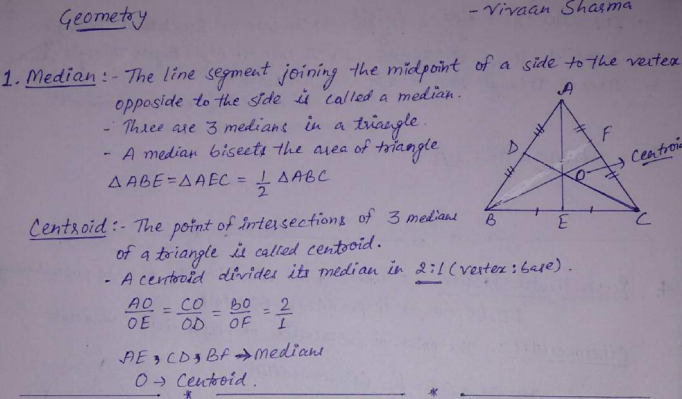 Geometry
- Vivaan Sharma
1. Median :- The line segment joining the midpoint of a side to the vertex
opposide to the side is called a median.
- Three are 3 medians in a triangle.
- A median bisects the area of triangle
△ABE = △AEC = 1/2 △ABC
A
D
F
O → Centroi
B
E
C
Centroid :- The point of intersections of 3 medians
of a triangle is called centroid.
- A centroid divides its median in 2:1 (vertex : base).
AO/OE = CO/OD = BO/OF = 2/1
AE, CD, BF → Medians
O → Centroid.
* *